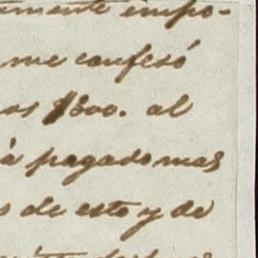 amente impo-
me confesó
os $800. al
à pagado mas
s de esto y de